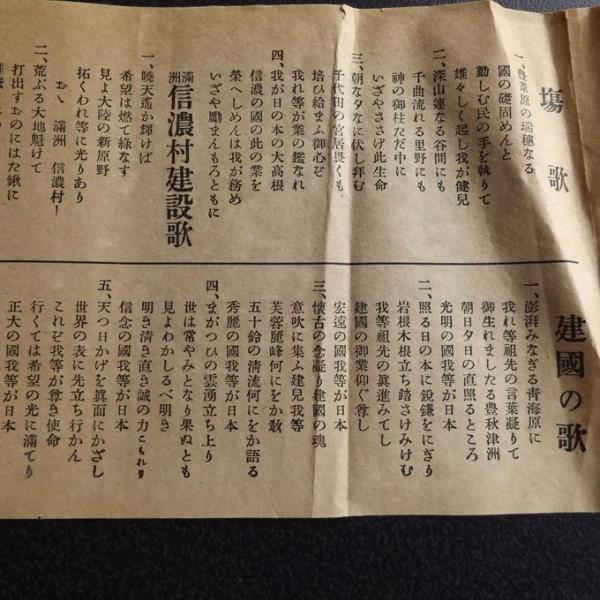 塲歌
一、豊葦原の瑞穂なる
國の礎固めんと
勤しむ民の手を執りて
雄々しく起し我が健兒
二、深山連なる谷間にも
千曲流れる里野にも
神の御柱ただ中に
いざやささげ此生命
三、朝な夕なに伏し拜む
千代田の宮居畏くも
培ひ給まふ御心ぞ
我れ等が業の鑑なれ
四、我が日の本の大高根
信濃の國の此の業を
榮へしめんは我が務め
いざや勵まんもろともに
滿洲信濃村建設歌
一、曉天遙か輝けば
希望は燃て綠なす
見よ大陸の新原野
拓くわれ等に光りあり
おゝ 滿洲 信濃村!
二、荒ぶる大地魁けて
打出すおのにはた鍬に
建國の歌
一、澎湃みなぎる青海原に
我れ等祖先の言葉凝りて
御生れましたる豊秋津洲
朝日夕日の直照るところ
光明の國我等が日本
二、照る日の本に鋭鎌をにぎり
岩根木根立ち踏さけみけむ
我等祖先の眞進みてし
建國の御業仰ぐ尊し
宏遠の國我等が日本
三、懷古の念凝り建國の魂
意吹に集ふ建兒我等
芙蓉麗峰何にをか敎
五十鈴の清流何にをか語る
秀麗の國我等が日本
四、まがつひの雲湧立ち上り
世は常やみとなり果ぬとも
見よわかしるべ明き
明き清き直き誠の力こもれり
信念の國我等が日本
五、天つ日かげを眞面にかざし
世界の表に先立ち行かん
これぞ我等が尊き使命
行くては希望の光に滿てり
正大の國我等が日本